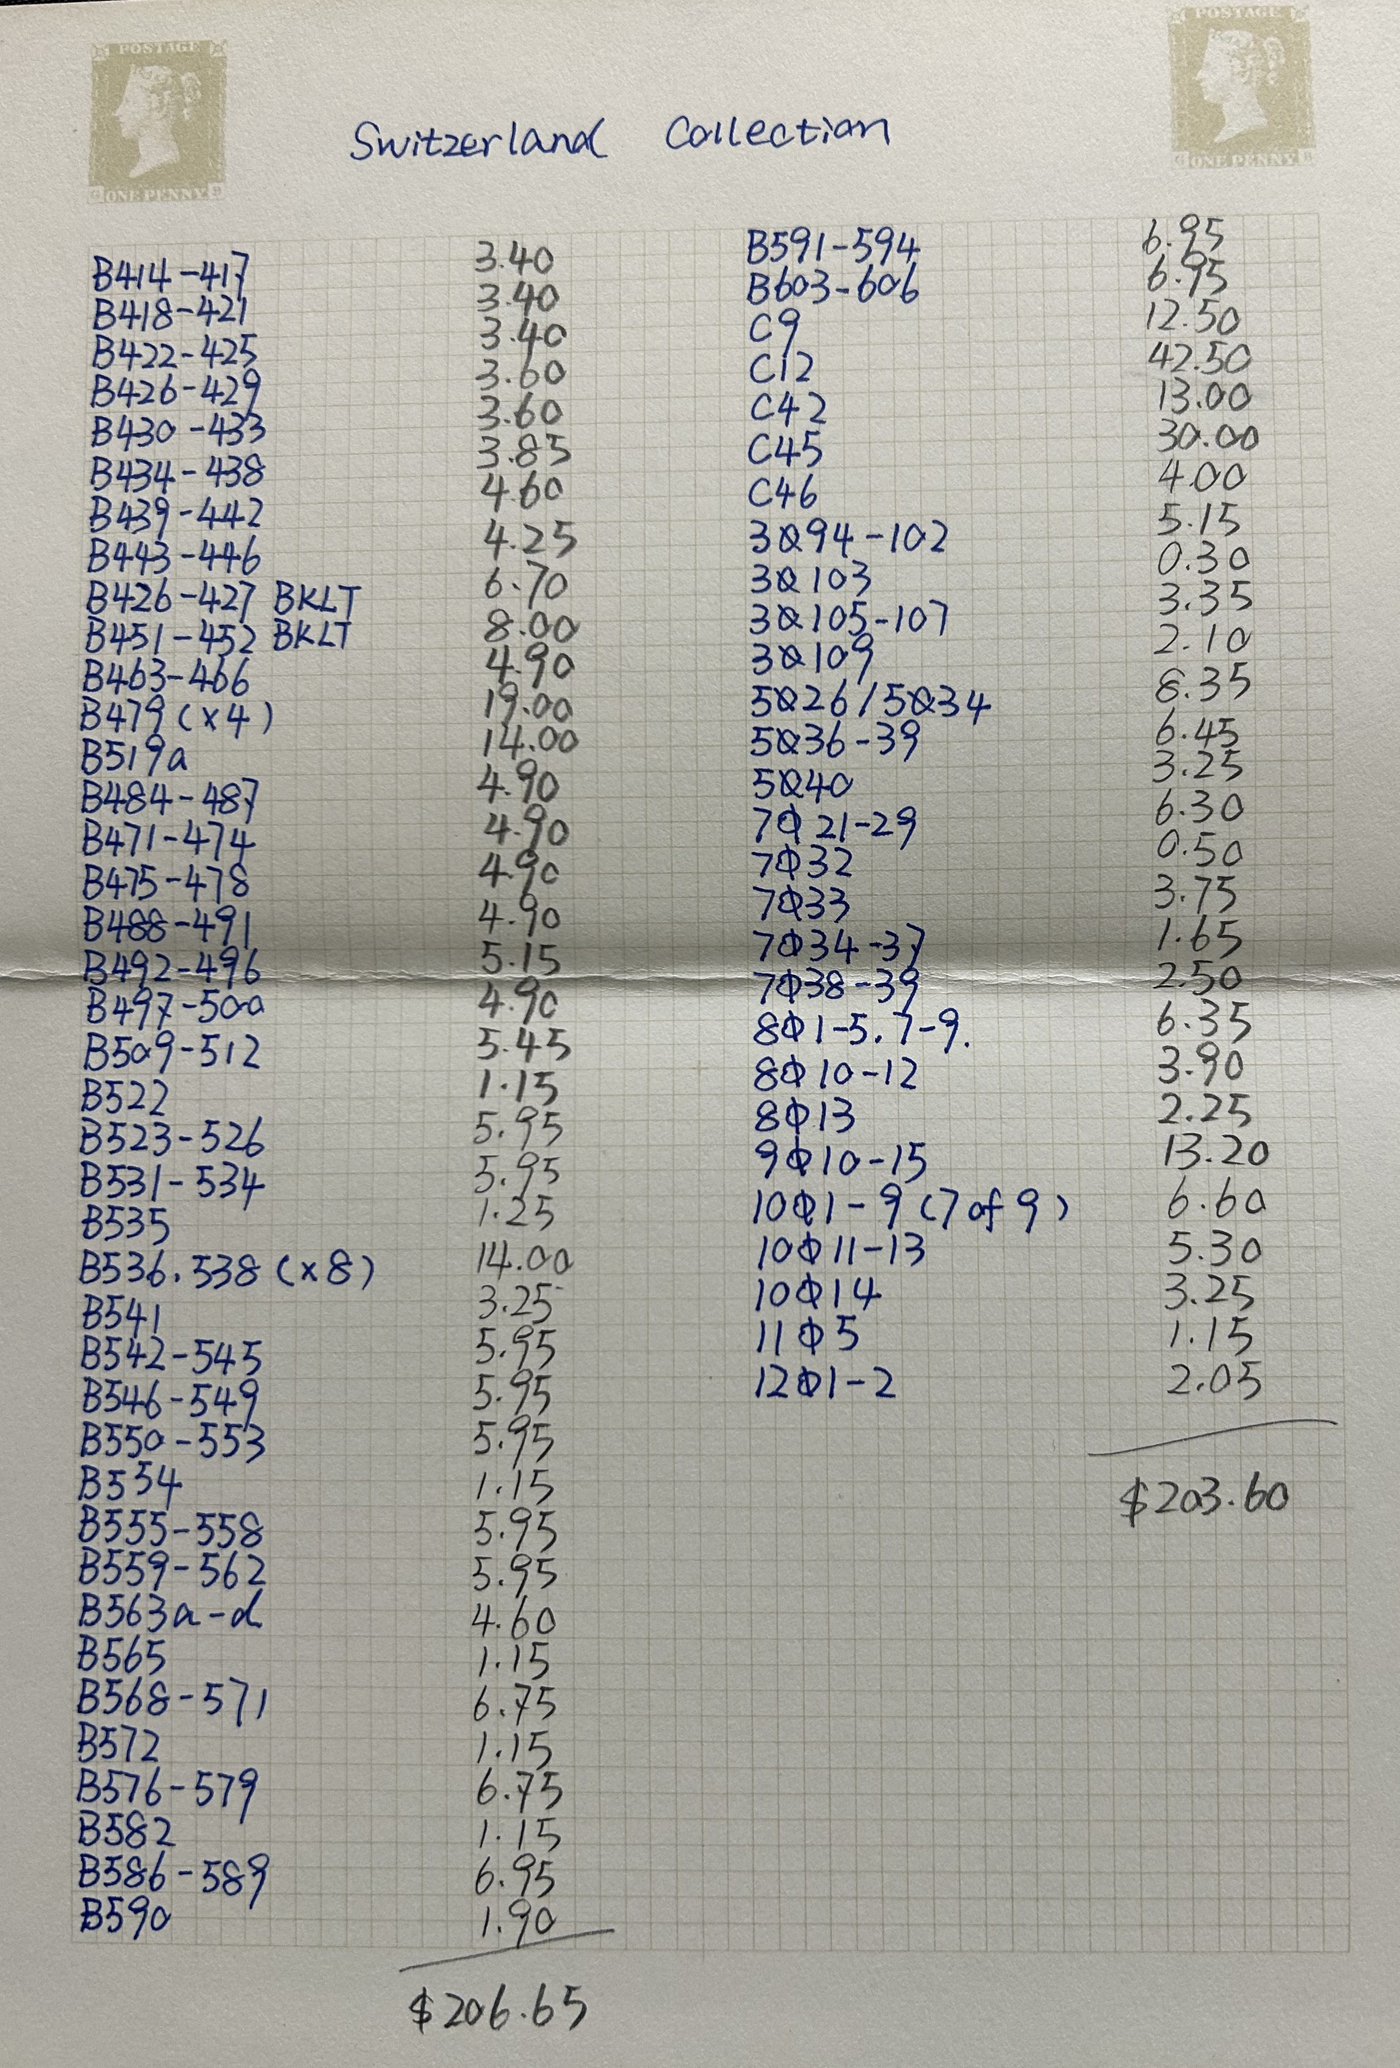 POSTAGE
ONE PENNY
POSTAGE
ONE PENNY
Switzerland Collection
B414-417 3.40
B418-421 3.40
B422-425 3.40
B426-429 3.60
B430-433 3.60
B434-438 3.85
B439-442 4.60
B443-446 4.25
B426-427 BKLT 6.70
B451-452 BKLT 8.00
B463-466 4.90
B479 (x4) 19.00
B519a 14.00
B484-487 4.90
B471-474 4.90
B475-478 4.90
B488-491 4.90
B492-496 5.15
B497-500 4.90
B509-512 5.45
B522 1.15
B523-526 5.95
B531-534 5.95
B535 1.25
B536.538 (x8) 14.00
B541 3.25
B542-545 5.95
B546-549 5.95
B550-553 5.95
B554 1.15
B555-558 5.95
B559-562 5.95
B563a-d 4.60
B565 1.15
B568-571 6.75
B572 1.15
B576-579 6.75
B582 1.15
B586-589 6.95
B590 1.90
$206.65
B591-594 6.95
B603-606 6.95
C9 12.50
C12 42.50
C42 13.00
C45 30.00
C46 4.00
3O94-102 5.15
3O103 0.30
3O105-107 3.35
3O109 2.10
5O26/5O34 8.35
5O36-39 6.45
5O40 3.25
7O21-29 6.30
7O32 0.50
7O33 3.75
7O34-37 1.65
7O38-39 2.50
8O1-5.7-9. 6.35
8O10-12 3.90
8O13 2.25
9O10-15 13.20
10O1-9 (7 of 9) 6.60
10O11-13 5.30
10O14 3.25
11O5 1.15
12O1-2 2.05
$203.60